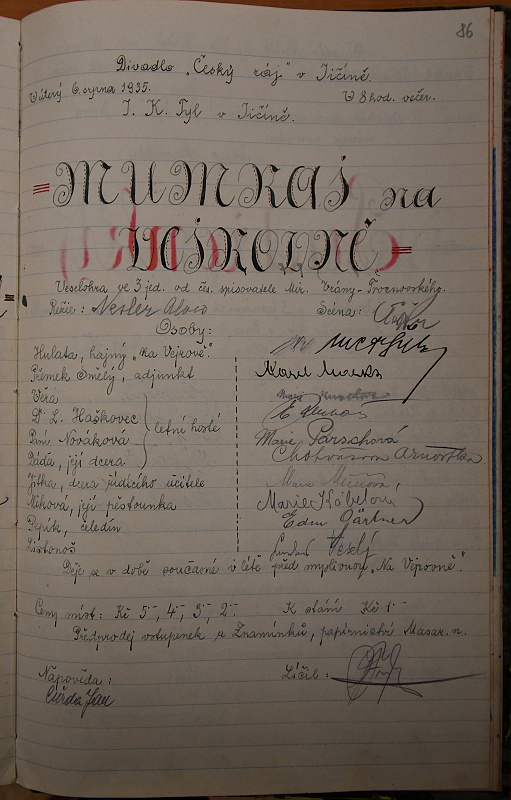 86
Divadlo "Český ráj" v Jičíně.
V úterý 6. srpna 1935. V 8 hod. večer.
J. K. Tyl v Jičíně.
MUMRAJ na
VEJROVNĚ
Veselohra ve 3 jed. od čes. spisovatele Mir. Vrány-Trocnovského.
Režie: Nesler Alois Scéna:
Osoby:
Hulata, hajný "Na Vejrově"
Přemek Smělý, adjunkt Karel
Věra
Dr L. Haškovec
letní hosté
Paní Nováková Marie Parschová
Dáda, její dcera
Jitka, dcera řídícího učitele
Miková, její pěstounka Marie Kobelová
Pepík, čeledín Edm Gärtner
Listonoš Veselý
Děje se v době současné v létě před myslivnou "Na Vejrovně".
Ceny míst: Kč 5-, 4-, 3-, 2- K stání Kč 1-
Předprodej vstupenek u Znamínků, papírnictví Masar. n.
Nápověda: Líčil:
Čuřda Jan